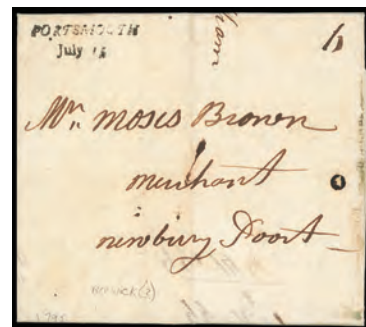 PORTSMOUTH
July 14
ham
Mr. Moses Brown
merchant
newbury Poort
1795